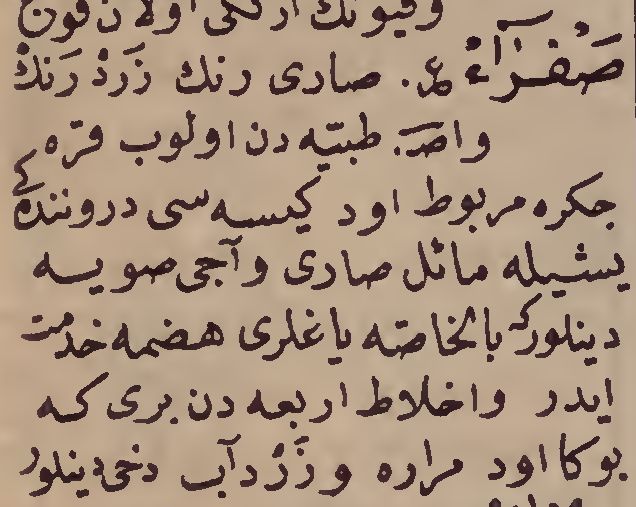 وقيونك اركلى اولان قون
صَفْرَآءْ ع. صارى رنك زَرْدْ رَنكْ
واصَ. طبيّه دن اولوب قره
جكره مربوط اود كيسه سى دروننده كى
يشيله مائل صارى وآجى صويه
دينلوركه بالخاصّه ياغلرى هضمه خدمت
ايدر واخلاط اربعه دن برى كه
بوكا اود مراره وزَرْدآب دخى دينلور